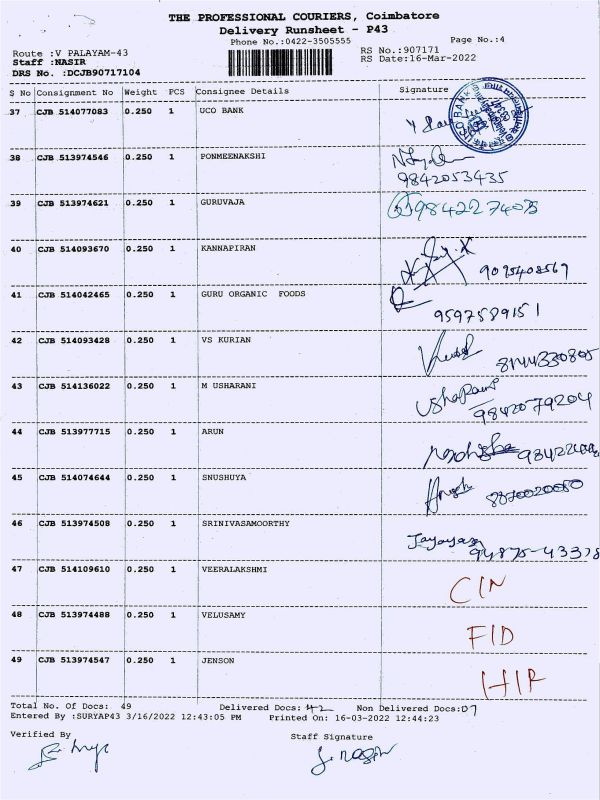 THE PROFESSIONAL COURIERS, Coimbatore
Delivery Runsheet - P43
Phone No.:0422-3505555 Page No.:4
Route :V PALAYAM-43 RS No.:907171
Staff :NASIR RS Date:16-Mar-2022
DRS No. :DCJB90717104
S No Consignment No Weight PCS Consignee Details Signature
37 CJB 514077083 0.250 1 UCO BANK
UCO BANK
38 CJB 513974546 0.250 1 PONMEENAKSHI
9842053435
39 CJB 513974621 0.250 1 GURUVAJA 9842274073
40 CJB 514093670 0.250 1 KANNAPIRAN
9095408569
41 CJB 514042465 0.250 1 GURU ORGANIC FOODS
9597589151
42 CJB 514093428 0.250 1 VS KURIAN
8144330805
43 CJB 514136022 0.250 1 M USHARANI
UshaRani
9842079204
44 CJB 513977715 0.250 1 ARUN
45 CJB 514074644 0.250 1 SNUSHUYA
8870020080
46 CJB 513974508 0.250 1 SRINIVASAMOORTHY
94875-43378
47 CJB 514109610 0.250 1 VEERALAKSHMI
CIN
48 CJB 513974488 0.250 1 VELUSAMY
FID
49 CJB 513974547 0.250 1 JENSON
Total No. Of Docs: 49 Delivered Docs: 42 Non Delivered Docs:07
Entered By :SURYAP43 3/16/2022 12:43:05 PM Printed On: 16-03-2022 12:44:23
Verified By Staff Signature